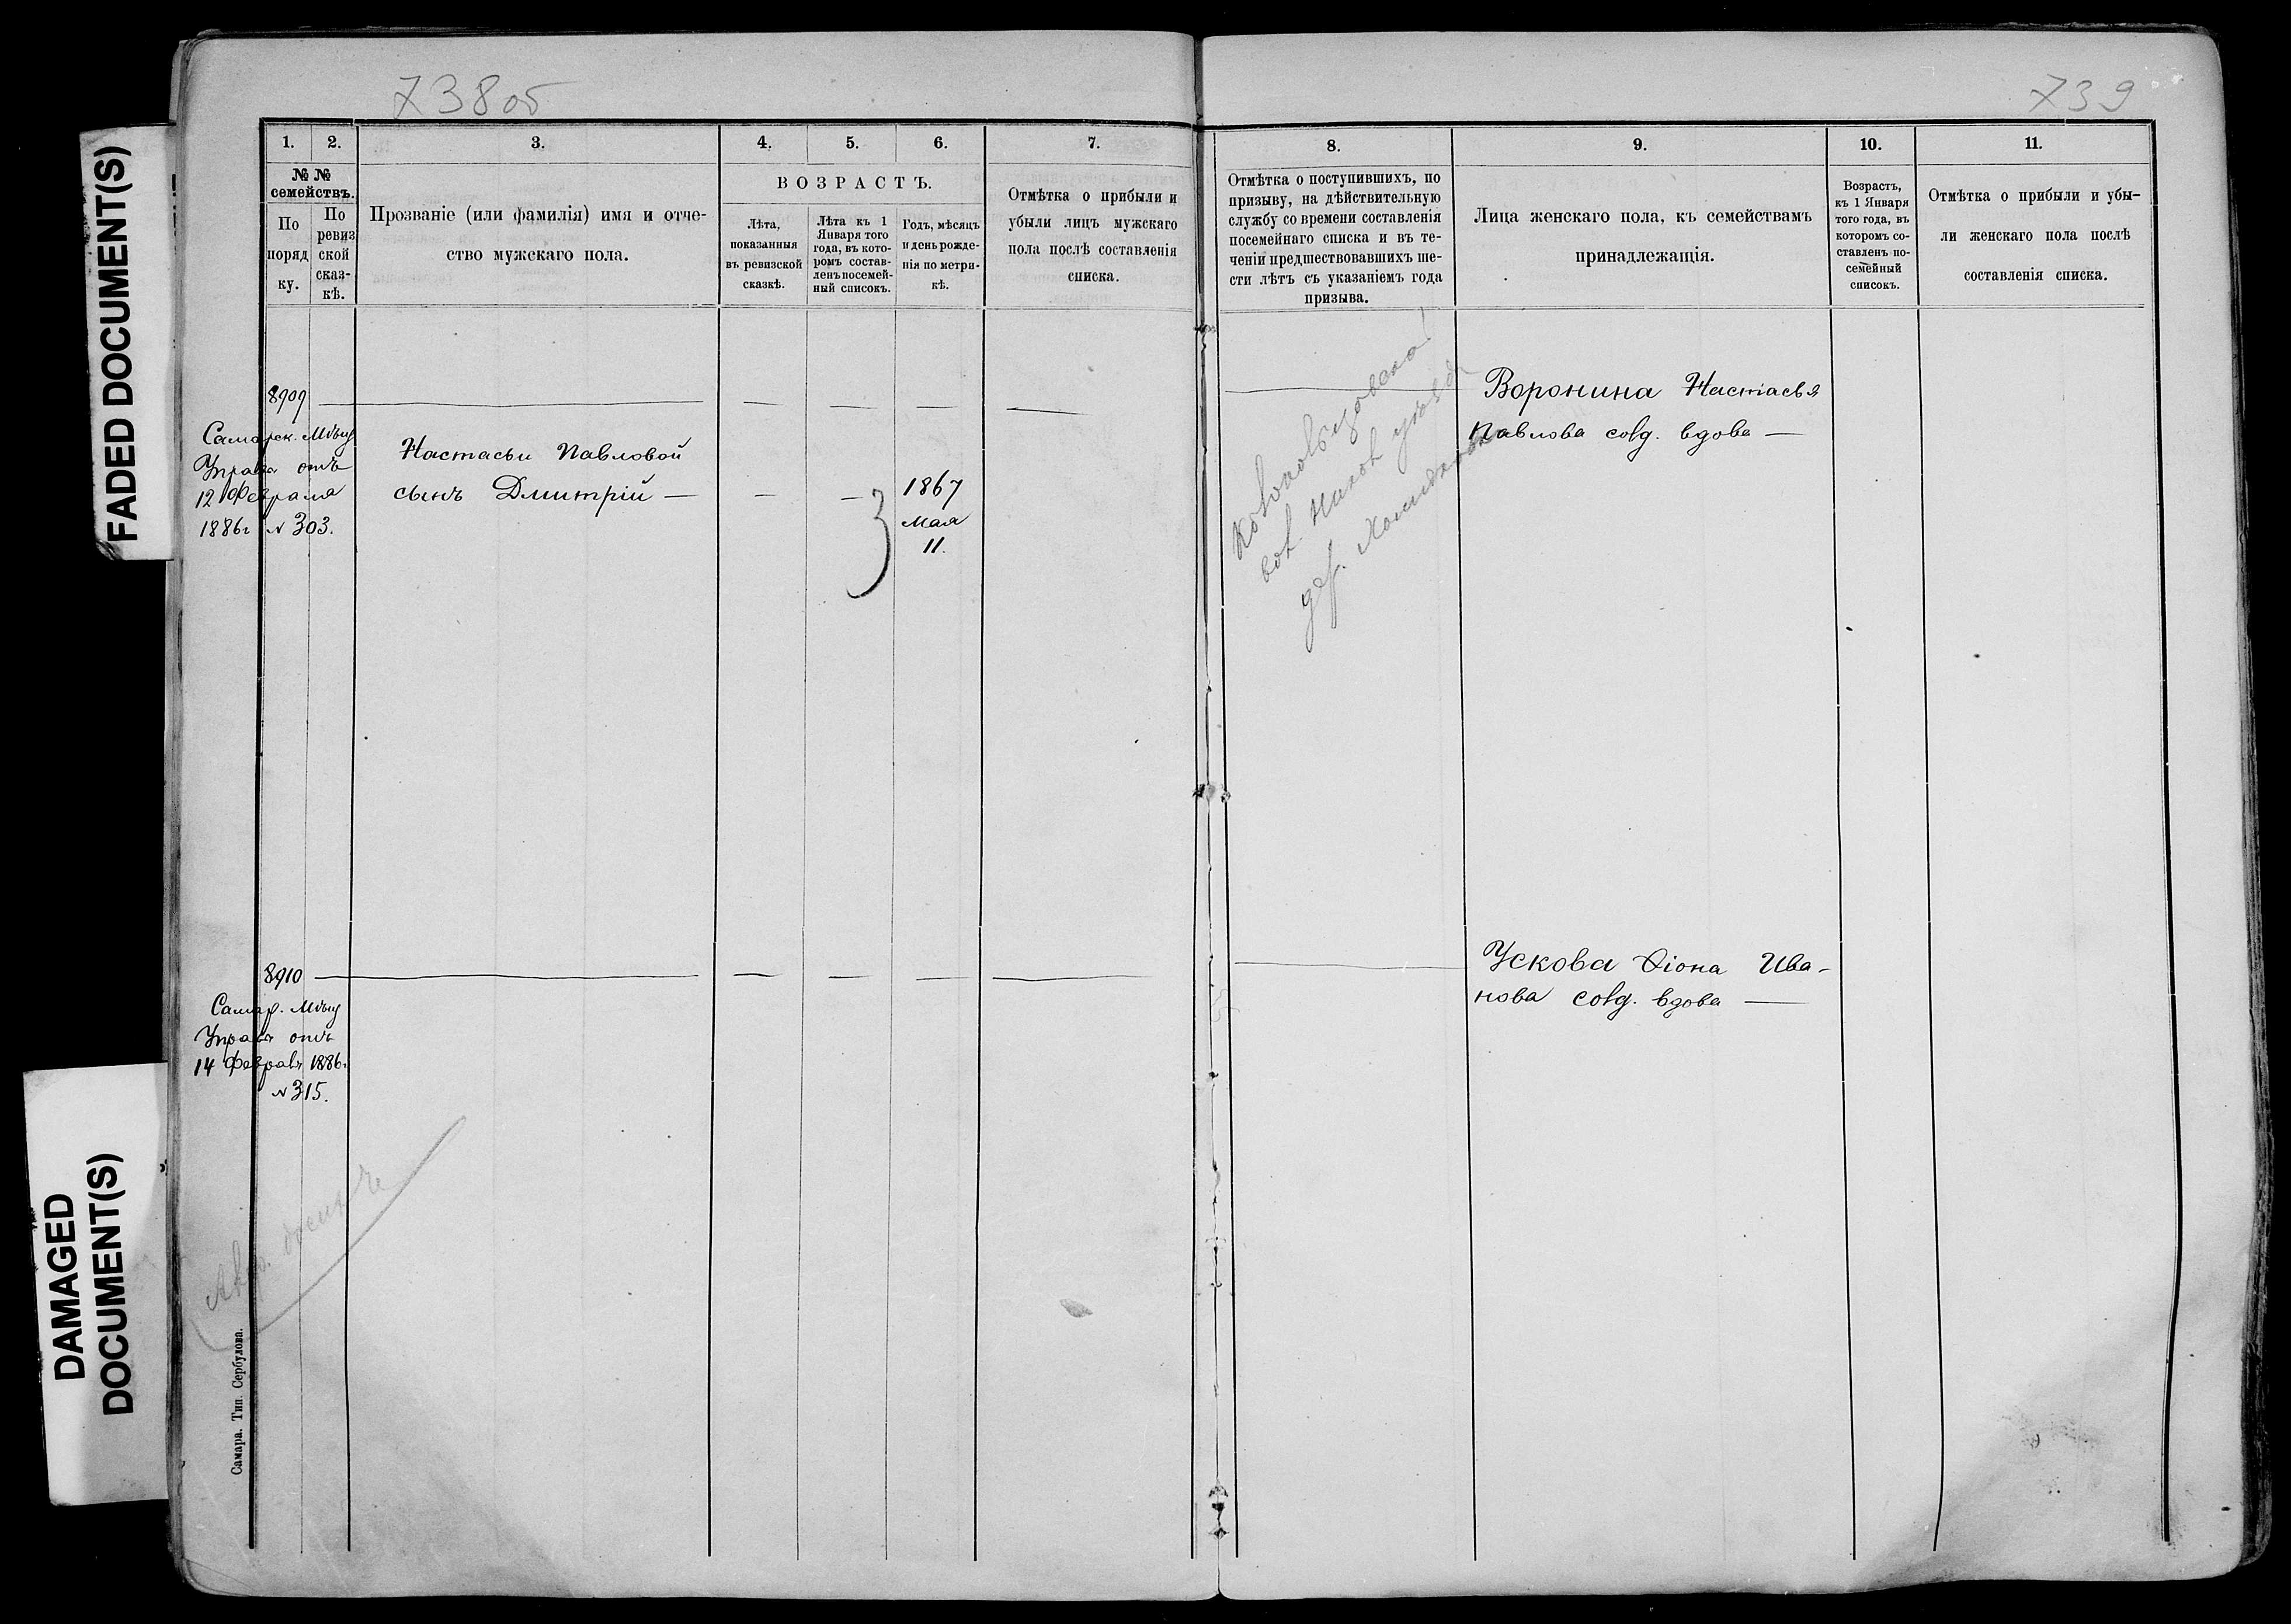 FADED DOCUMENT(S)
DAMAGED
DOCUMENT(S)
738об
739
1.
2.
3.
4.
5.
6.
7.
№ №
семействъ.
По
поряд
ку.
По
ревиз
ской
сказ-
кѣ.
Прозваніе (или фамилія) имя и отче-
ство мужскаго пола.
ВОЗРАСТЪ.
Лѣта,
показанныя
въ ревизской
сказкѣ.
Лѣта къ 1
Января того
года, въ кото-
ромъ состав-
ленъ посемей-
ный список.
Годъ, мѣсяцъ
и день рожде-
нія по метри-
кѣ.
Отмѣтка о прибыли и
убыли лицъ мужскаго
пола послѣ составленія
списка.
8909
Самарск. Мѣщ
Управы отъ
12 Февраля
1886г №303.
Настасьи Павловой
сынъ Дмитрій —
— —
1867
мая
11.
8910
Самар. Мѣщ
Управы отъ
14 Февраля 1886г
№315.
Самара. Тип. Сербулова.
8.
9.
10.
11.
Отмѣтка о поступившихъ, по
призыву, на дѣйствительную
службу со времени составленія
посемейнаго списка и въ те-
ченіи предшествовавшихъ ше-
сти лѣтъ съ указаніемъ года
призыва.
Лица женскаго пола, къ семействамъ
принадлежащія.
Возрастъ,
къ 1 Января
того года, въ
которомъ со-
ставленъ по-
семейный
списокъ.
Отмѣтка о прибыли и убы-
ли женскаго пола послѣ
составленія списка.
вол.
дер.
Воронина Настасья
Павлова солд. вдова —
Ускова Ѳіона Ива-
нова солд. вдова —